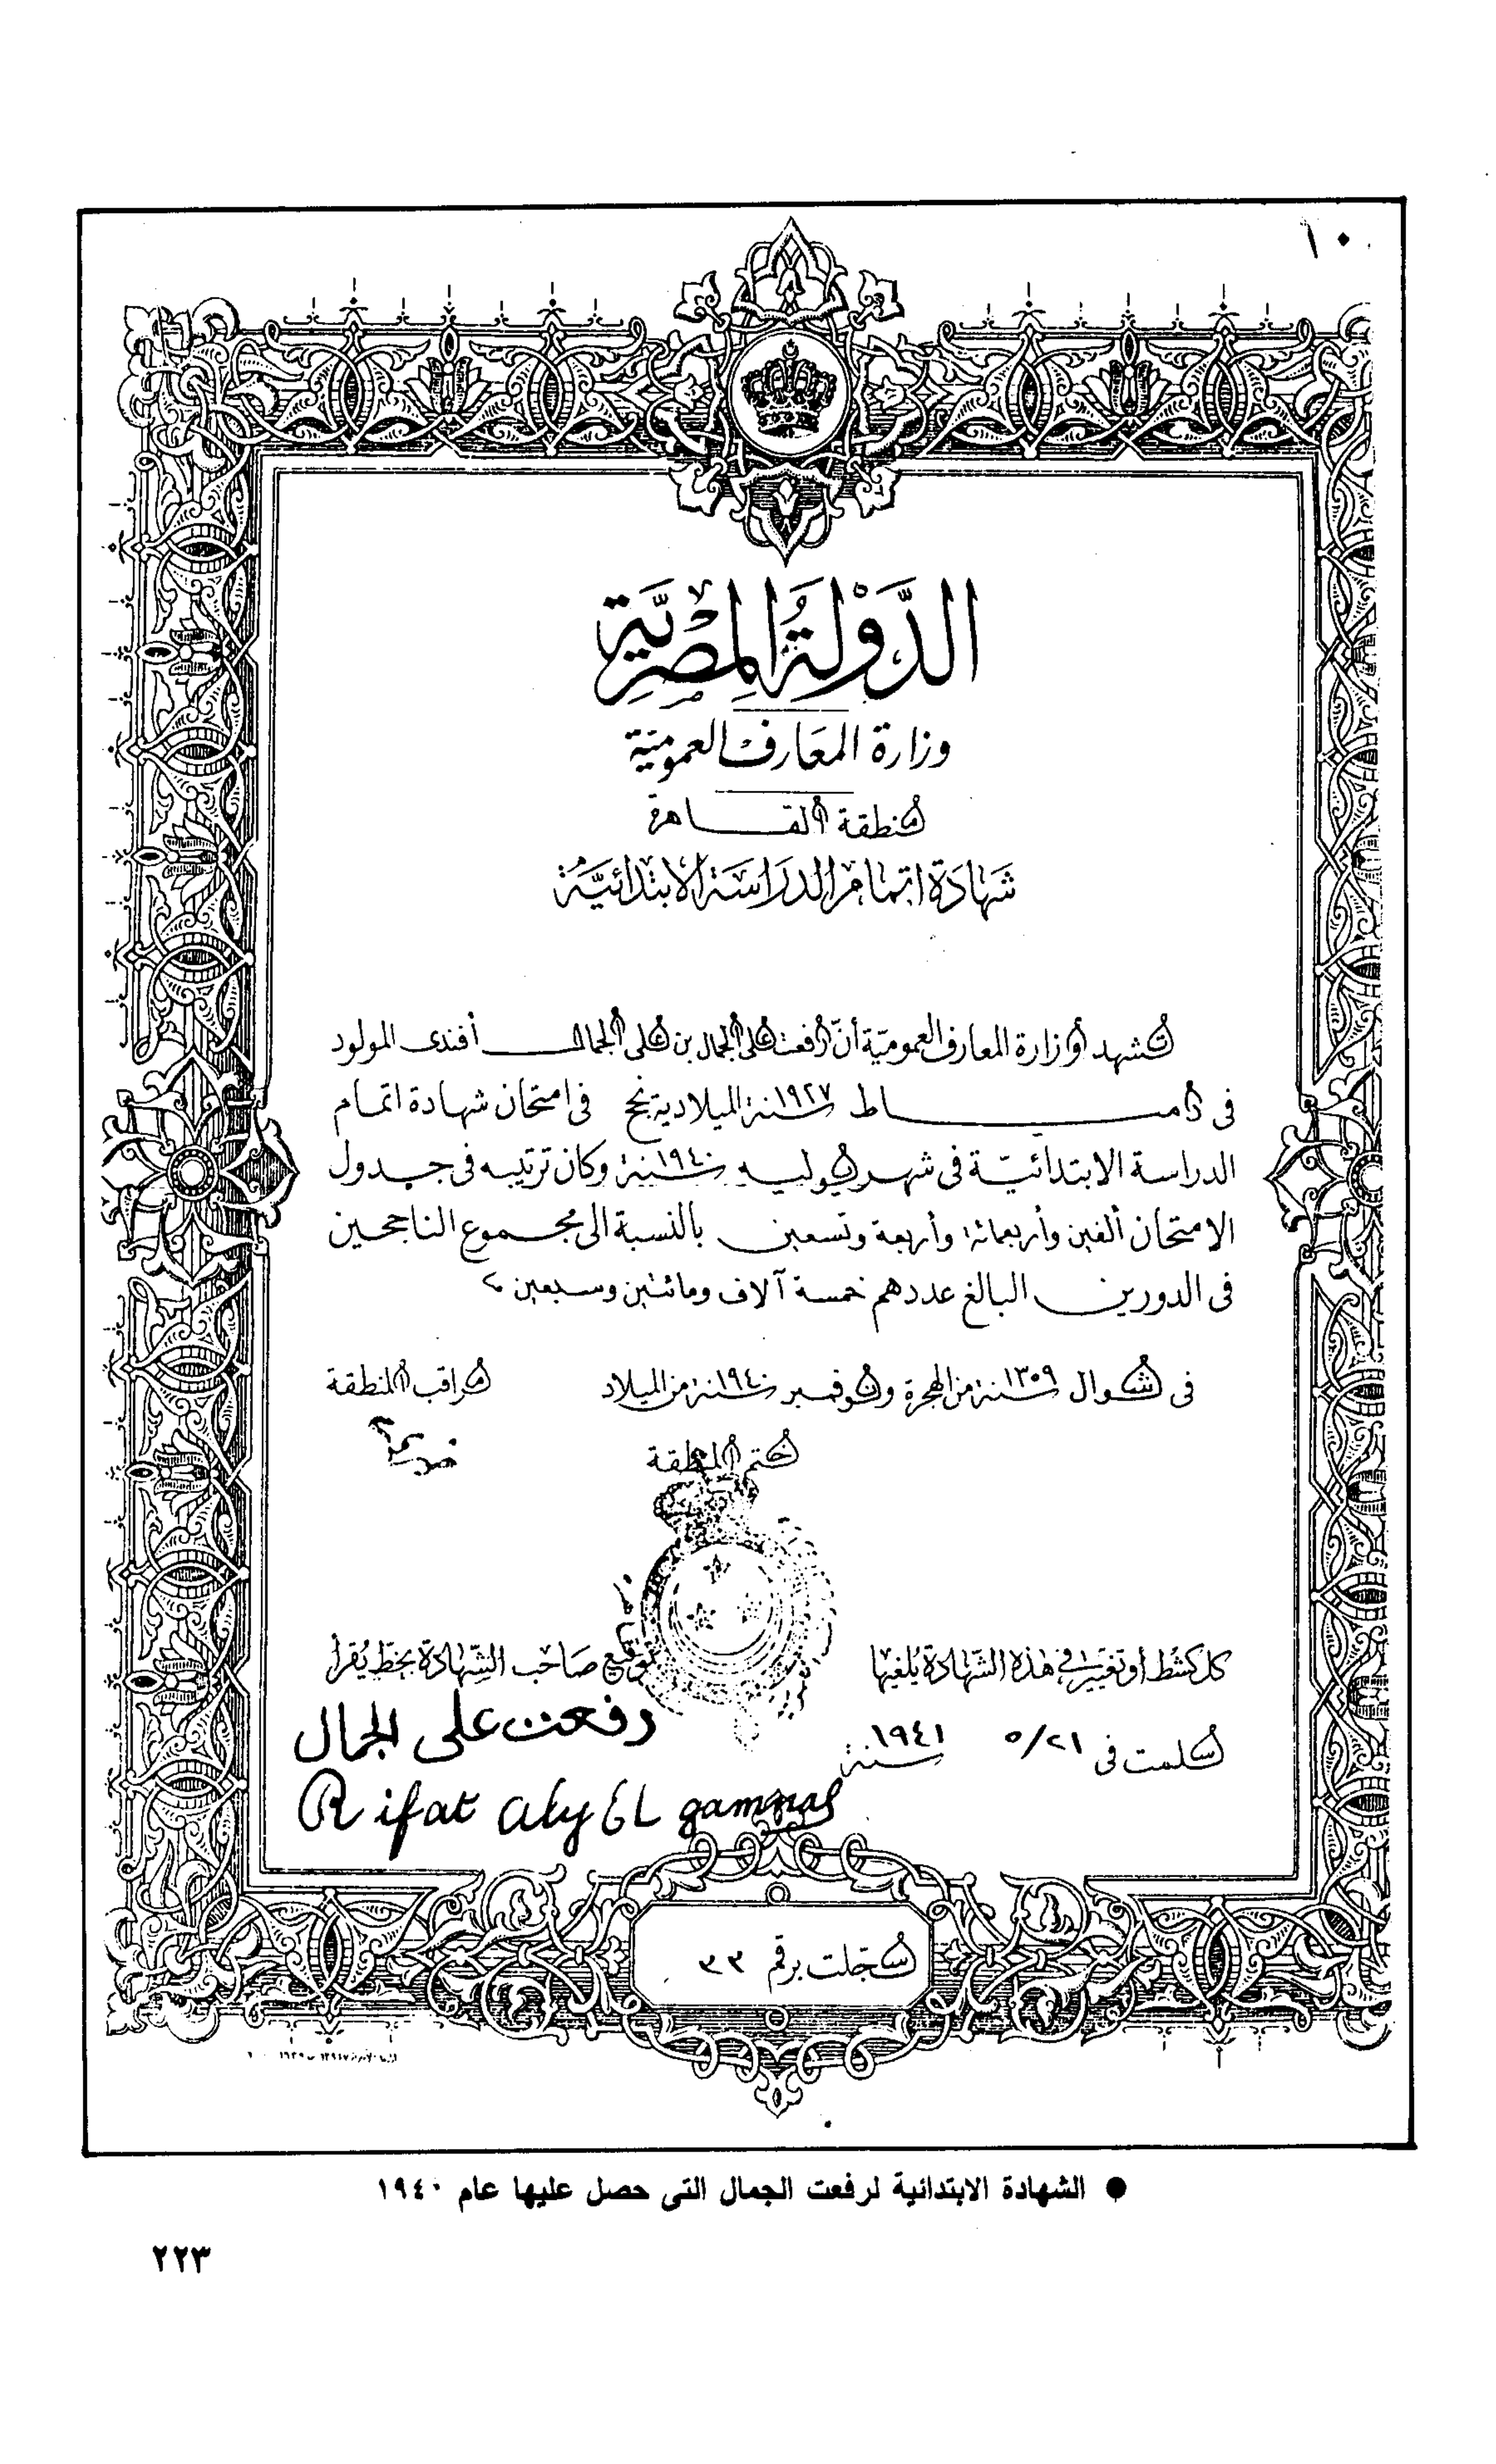 ١٠
الدَّوْلَةُ المِصْرِيَّة
وزارة المعَارف العموميّة
منطقة القاهرة
شهَادَة اتمام الدراسَة الابتدائيَّة
تشهد وزارة المعارف العموميّة أنّ رفعت على الجمال بن على الجمال أفندى المولود
فى دمياط سنة ١٩٢٧ الميلادية نجح فى امتحان شهادة اتمام
الدراسة الابتدائيّة فى شهر يوليه سنة ١٩٤٠ وكان ترتيبه فى جدول
الامتحان ألفين وأربعمائة وأربعة وتسعين بالنسبة الى مجموع الناجحين
فى الدورين البالغ عددهم خمسة آلاف ومائتين وسبعين
فى شوال سنة ١٣٥٩ من الهجرة ونوفمبر سنة ١٩٤٠ من الميلاد
مراقب المنطقة
ختم المنطقة
كل كشط أو تغيير فى هذه الشَّهادة يُلغيها
توقيع صَاحب الشَّهادة بخط يُقرأ
رفعت على الجمال
سلمت فى ٥/٢١ سنة ١٩٤١
Rifat Aly EL gammal
سجّلت برقم ٣٣
● الشهادة الابتدائية لرفعت الجمال التى حصل عليها عام ١٩٤٠
٢٢٣